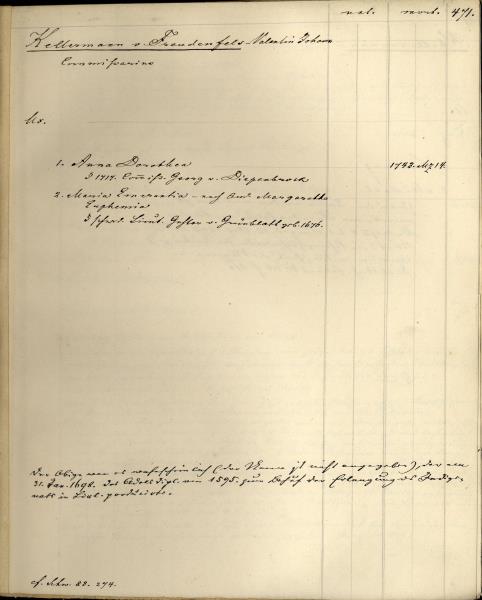 nat. mort. 471.
Kellermann v. Freudenfels Valentin Johann
Commissarius
Ux.
1. Anna Dorothea 1783. Mz 14.
1717. Commiss. Georg v. Diepenbrock
2. Maria Emerentia – nach And. Margaretha
Euphemia
schwed. Lieut. v. Grünblatt geb. 1676.
Der Obige war es wahrscheinlich (der Name ist nicht angegeben), der am
31. Jan. 1698. das Adelsdipl. von 1595. zum Behuf der Erlangung des Indige-
nats in Livl. producirte.
cf. Schw. 88. 274.